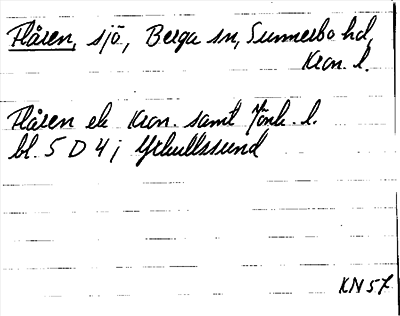 Flåren, sjö, Berga sn, Sunnerbo hd,
Kron. l.
Flåren ek Kron. samt Jönk. l.
bl. 5 D 4 i
KN 57